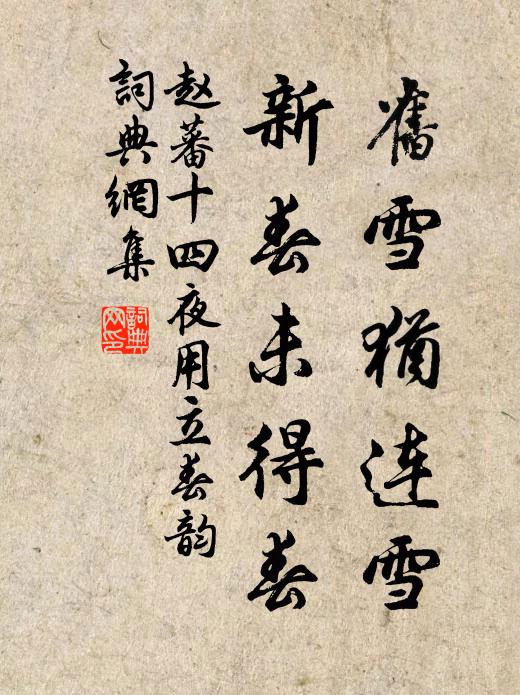 舊雪猶連雪
新春未得春
赵蕃十四夜用立春韵
詞典網集
詞典網印